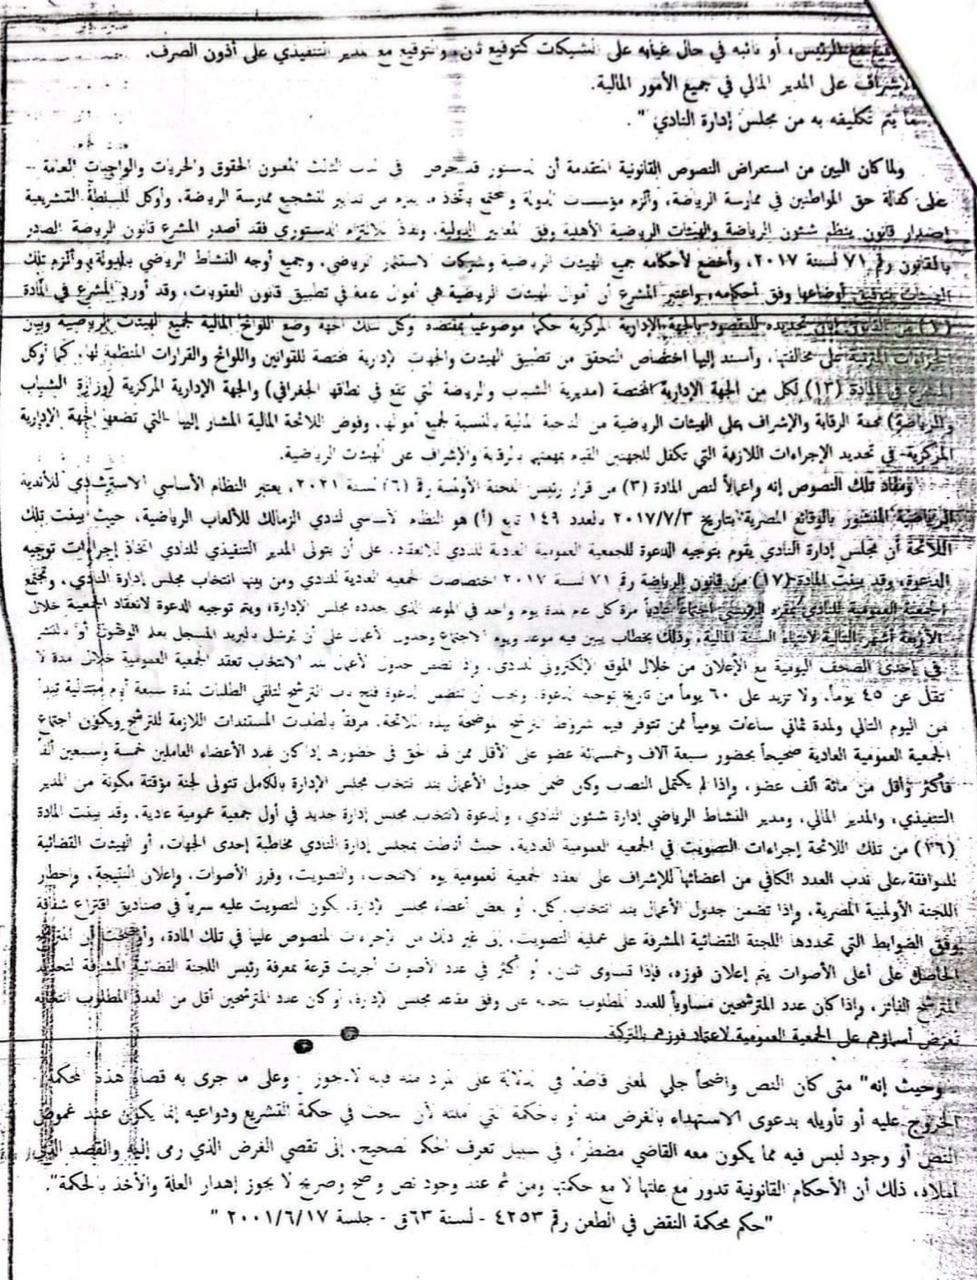 الرئيس، أو نائبه في حال غيابه على الشيكات كتوقيع ثان، والتوقيع مع مدير التنفيذي على أذون الصرف.
الإشراف على المدير المالي في جميع الأمور المالية.
ما يتم تكليفه به من مجلس إدارة النادي".
ولما كان البين من استعراض النصوص القانونية المتقدمة أن الدستور قد حرص في الباب الثالث المعنون الحقوق والحريات والواجبات العامة –
على كفالة حق المواطنين في ممارسة الرياضة، وألزم مؤسسات الدولة والمجتمع باتخاذ ما يلزم من تدابير لتشجيع ممارسة الرياضة، وأوكل للسلطة التشريعية
إصدار قانون ينظم شئون الرياضة والهيئات الرياضية الأهلية وفق المعايير الدولية. ونفاذ للالتزام الدستوري فقد أصدر المشرع قانون الرياضة الصادر
بالقانون رقم ٧١ لسنة ٢٠١٧، وأخضع لأحكامه جميع الهيئات الرياضية وشركات الاستثمار الرياضي، وجميع أوجه النشاط الرياضي بالدولة، وألزم تلك
الهيئات بتوفيق أوضاعها وفق أحكامه، واعتبر المشرع أن أموال الهيئات الرياضية هي أموال عامة في تطبيق قانون العقوبات، وقد أورد المشرع في المادة
(١) من القانون تحديده للمقصود بالجهة الإدارية المركزية حكما موضوعيا بمقتضاه وكل تلك الجهة وضع اللوائح المالية لجميع الهيئات الرياضية وبين
الجزاءات المترتبة على مخالفتها، وأسند إليها اختصاص التحقق من تطبيق الهيئات والجهات الإدارية المختصة للقوانين واللوائح والقرارات المنظمة لها. كما أوكل
المشرع في المادة (١٣) لكل من الجهة الإدارية المختصة (مديرية الشباب والرياضة التي تقع في نطاقها الجغرافي) والجهة الإدارية المركزية (وزارة الشباب
والرياضة) مهمة الرقابة والإشراف على الهيئات الرياضية من الناحية المالية بالنسبة لجميع أموالها، وفوض اللائحة المالية المشار إليها التي تضعها الجهة الإدارية
المركزية في تحديد الإجراءات اللازمة التي تكفل للجهتين القيام بمهمتهم بالرقابة والإشراف على الهيئات الرياضية.
ومفاد تلك النصوص إنه وإعمالاً لنص المادة (٣) من قرار رئيس اللجنة الأولمبية رقم (٦) لسنة ٢٠٢١، يعتبر النظام الأساسي الاسترشادي للأندية
الرياضية المنشور بالوقائع المصرية بتاريخ ٢٠١٧/٧/٣ بالعدد ١٤٩ تابع (أ) هو النظام الأساسي لنادي الزمالك للألعاب الرياضية، حيث بينت تلك
اللائحة أن مجلس إدارة النادي يقوم بتوجيه الدعوة للجمعية العمومية العادية للنادي للانعقاد. على أن يتولى المدير التنفيذي للنادي اتخاذ إجراءات توجيه
الدعوة، وقد بينت المادة (١٧) من قانون الرياضة رقم ٧١ لسنة ٢٠١٧ اختصاصات الجمعية العادية للنادي ومن بينها انتخاب مجلس إدارة النادي، وتجتمع
الجمعية العمومية للنادي بمقره الرئيسي اجتماعاً عادياً مرة كل عام لمدة يوم واحد في الموعد الذي يحدده مجلس الإدارة، ويتم توجيه الدعوة لانعقاد الجمعية خلال
الأربعة أشهر التالية لانتهاء السنة المالية، وذلك بخطاب يبين فيه موعد ويوم الاجتماع وجدول الأعمال على أن يُرسل بالبريد المسجل بعلم الوصول أو بالنشر
في إحدى الصحف اليومية مع الإعلان من خلال الموقع الإلكتروني للنادي. وإذا تضمن جدول الأعمال بند الانتخاب تعقد الجمعية العمومية خلال مدة لا
تقل عن ٤٥ يوماً، ولا تزيد على ٦٠ يوماً من تاريخ توجيه الدعوة. ويجب أن تتضمن الدعوة فتح باب الترشح لتلقي الطلبات لمدة سبعة أيام متتالية تبدأ
من اليوم التالي ولمدة ثماني ساعات يومياً ممن تتوفر فيهم شروط الترشح الموضحة بهذه اللائحة. مرفقاً بالطلبات المستندات اللازمة للترشح ويكون اجتماع
الجمعية العمومية العادية صحيحاً بحضور سبعة آلاف وخمسمائة عضو على الأقل ممن لهم حق في حضورها إذا كان عدد الأعضاء العاملين خمسة وسبعين ألف
فأكثر وأقل من مائة ألف عضو، وإذا لم يكتمل النصاب وكان ضمن جدول الأعمال بند انتخاب مجلس الإدارة بالكامل تتولى لجنة مؤقتة مكونة من المدير
التنفيذي، والمدير المالي، ومدير النشاط الرياضي إدارة شئون النادي، والدعوة لانتخاب مجلس إدارة جديد في أول جمعية عمومية عادية. وقد بينت المادة
(٣٦) من تلك اللائحة إجراءات التصويت في الجمعية العمومية العادية. حيث أناطت بمجلس إدارة النادي مخاطبة إحدى الجهات، أو الهيئات القضائية
للموافقة على ندب العدد الكافي من اعضائها للإشراف على انعقاد الجمعية العمومية يوم الانتخاب، والتصويت، وفرز الأصوات، وإعلان النتيجة. وإخطار
اللجنة الأولمبية المصرية، وإذا تضمن جدول الأعمال بند انتخاب كل، أو بعض أعضاء مجلس الإدارة. يكون التصويت عليه سرياً في صناديق اقتراع شفافة
وفق الضوابط التي تحددها اللجنة القضائية المشرفة على عملية التصويت. إلى غير ذلك من الإجراءات المنصوص عليها في تلك المادة، وأوضحت أن المترشح
الحاصل على أعلى الأصوات يتم إعلان فوزه، فإذا تساوى اثنان، أو أكثر في عدد الأصوات أجريت قرعة بمعرفة رئيس اللجنة القضائية المشرفة لتحديد
المترشح الفائز، وإذا كان عدد المترشحين مساوياً للعدد المطلوب انتخابه على وفق مقاعد مجلس الإدارة، أو كان عدد المترشحين أقل من العدد المطلوب انتخابه
تعرض أسماؤهم على الجمعية العمومية لاعتماد فوزهم بالتزكية.
وحيث إنه" متى كان النص واضحاً جلي المعنى قاطعاً في الدلالة على المراد منه فإنه لا يجوز - وعلى ما جرى به قضاء هذه المحكمة -
الخروج عليه أو تأويله بدعوى الاستهداء بالغرض منه أو بالحكمة التي أملته لأن البحث في حكمة التشريع ودواعيه إنما يكون عند غموض
النص أو وجود لبس فيه مما يكون معه القاضي مضطراً، في سبيل تعرف الحكم الصحيح. إلى تقصي الغرض الذي رمى إليه والقصد الذي
أملاه، ذلك أن الأحكام القانونية تدور مع علتها لا مع حكمتها ومن ثم عند وجود نص واضح وصريح لا يجوز إهدار العلة والأخذ بالحكمة".
"حكم محكمة النقض في الطعن رقم ٤٢٥٣ - لسنة ٦٣ق - جلسة ٢٠٠١/٦/١٧ "